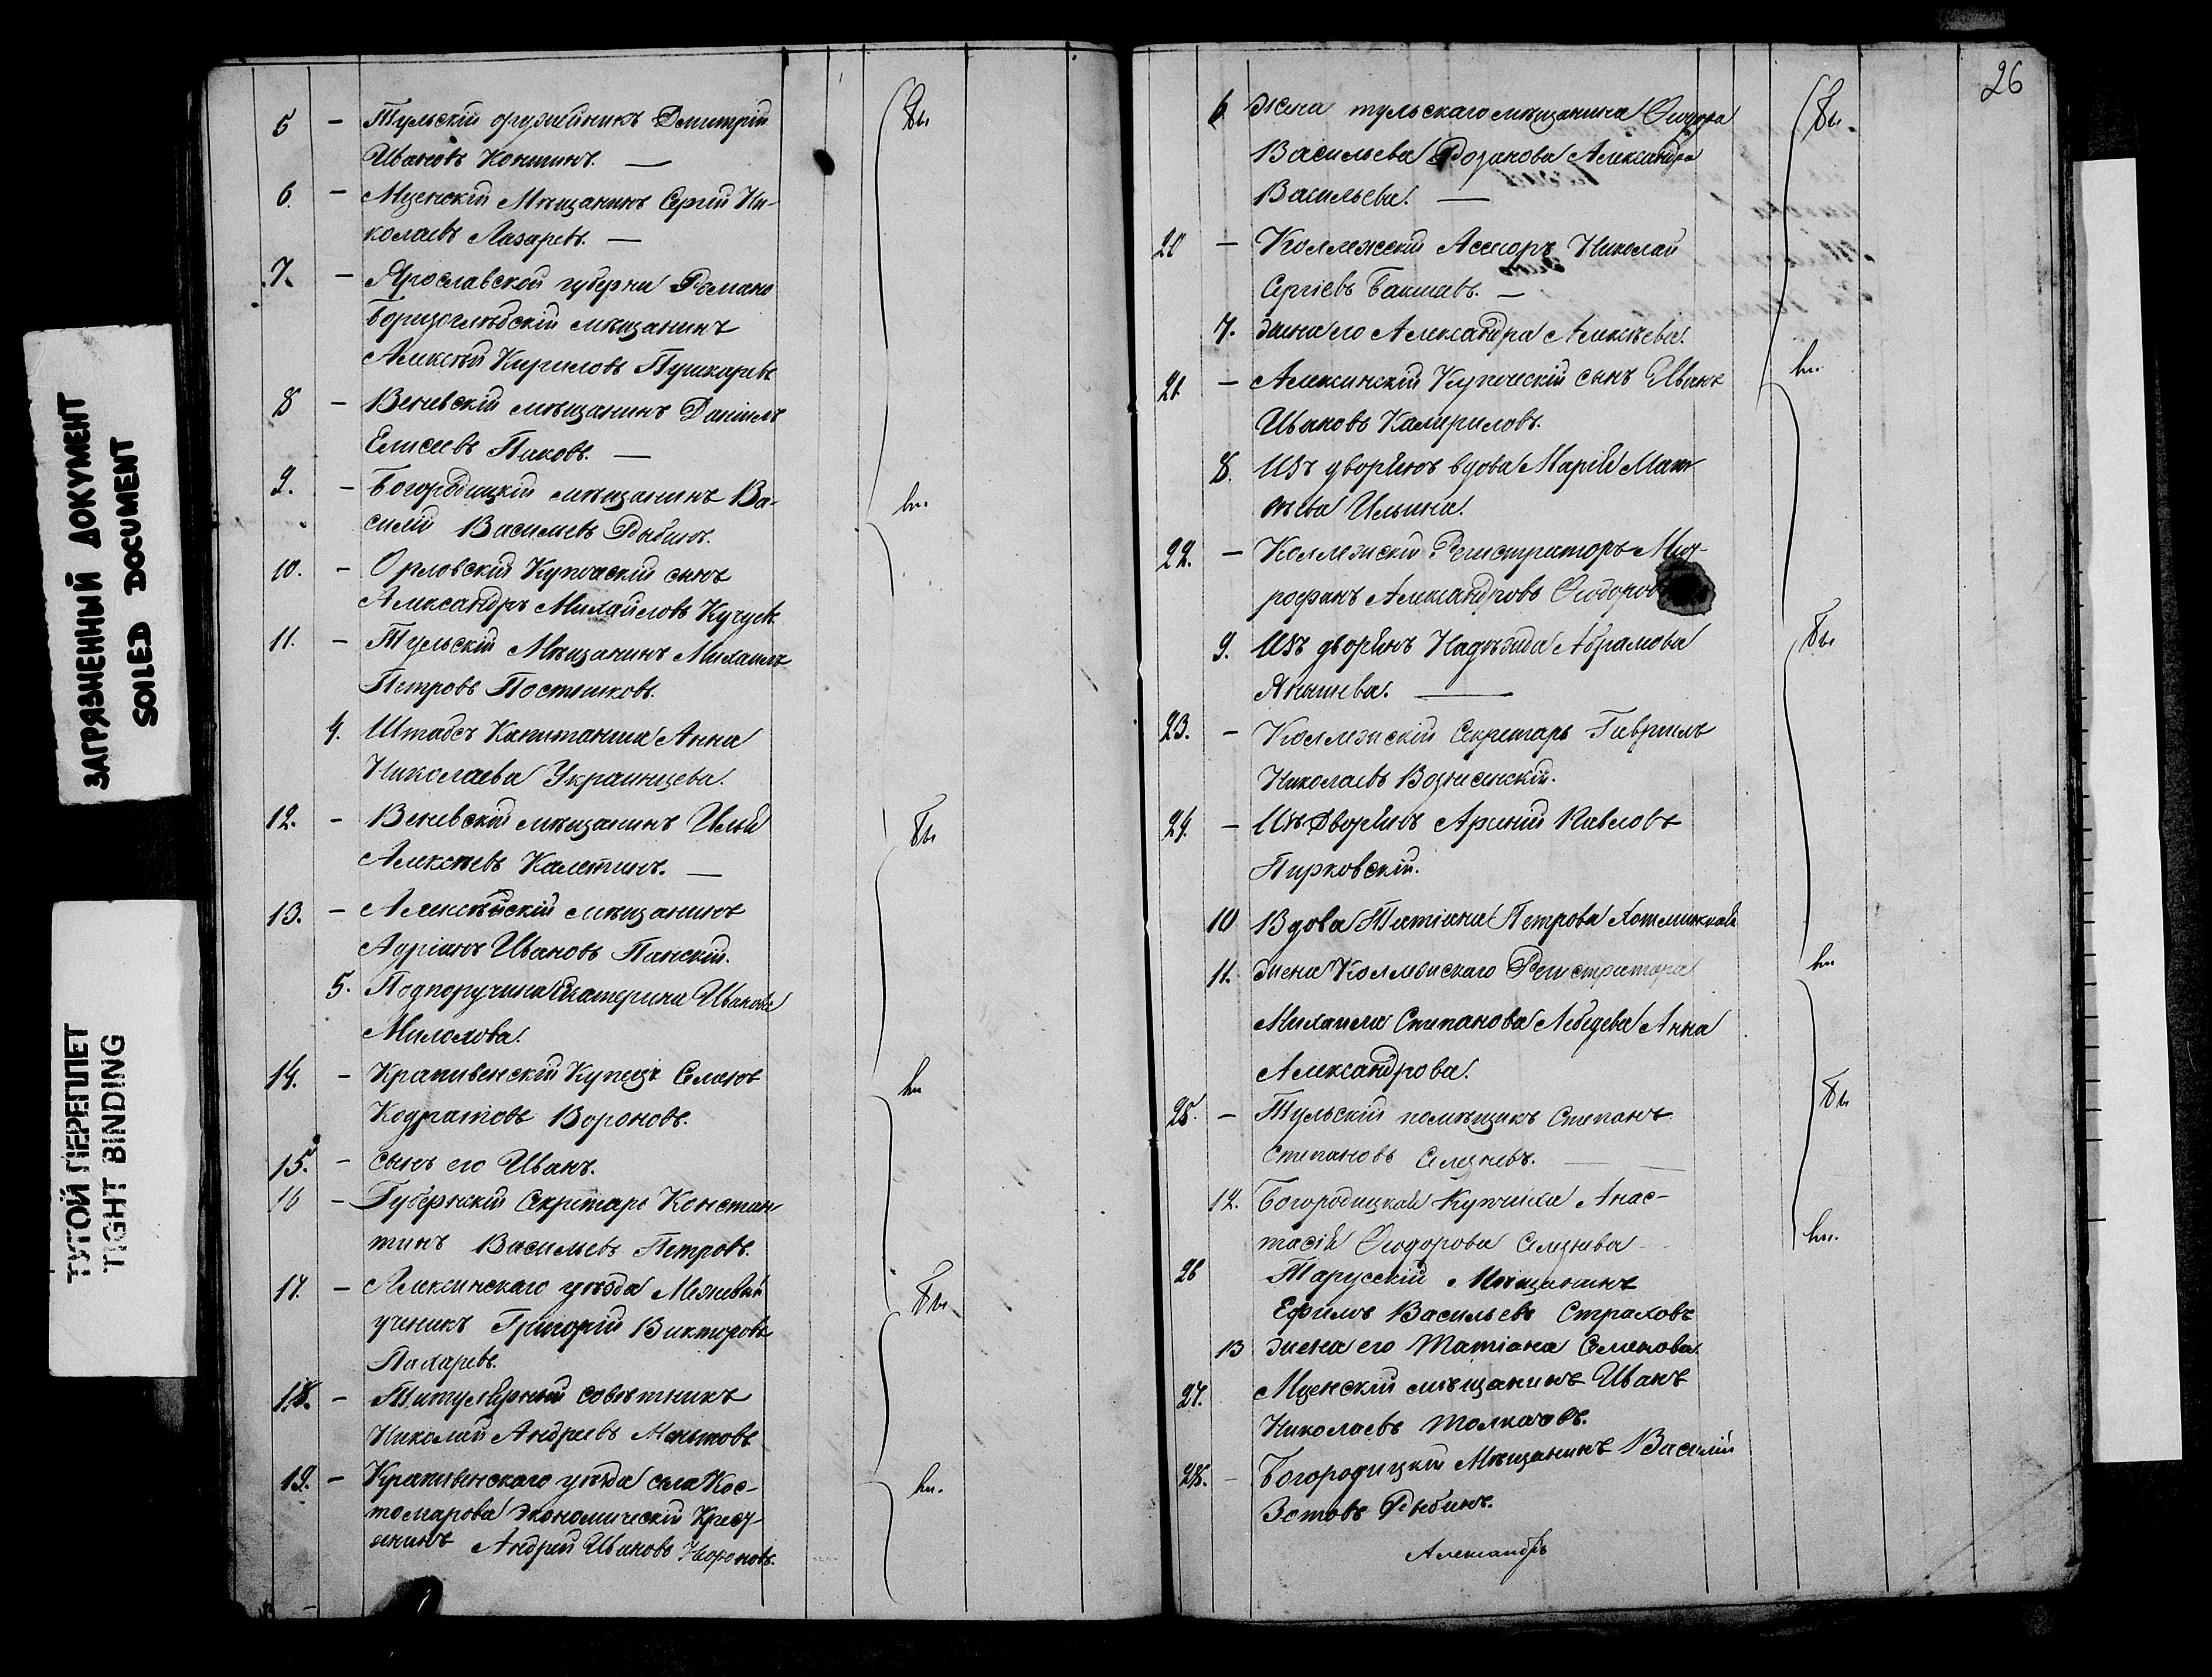 5 — Тульскій оружейникъ Дмитрій
Ивановъ Коншинъ. —
6. — Мценскій Мѣщанинъ Сергій Ни-
колаевъ Лазаревъ. —
7. — Ярославской губерніи Романо
Борисоглѣбскій мѣщанинъ
Алексѣй Кириловъ Пушкаревъ
8 — Веневскій мѣщанинъ Даніилъ
Елисеевъ Паковъ. —
9. — Богородицкій мѣщанинъ Ва-
силій Васильевъ Рыбинъ.
10. — Орловскій Купческій сынъ
Александръ Михайловъ
11. — Тульскій Мѣщанинъ Михаилъ
Петровъ Постниковъ.
4. Штабсъ Капитанша Анна
Николаева Украинцева.
12. — Веневскій мѣщанинъ Илья
Алексѣевъ Калетинъ. —
13. — мѣщанинъ
Адріанъ Ивановъ Панскій.
5. Подпоручица Екатерина Иванова
Милохова.
14. — Крапивенскій Купецъ Семенъ
Кодратовъ Вороновъ.
15. — сынъ его Иванъ.
16 — Губернскій Секретарь Констан
тинъ Васильевъ Петровъ.
17. — Алексинскаго уѣзда Межевый
ученикъ Григорій Викторовъ
Пахаревъ.
18. — Титулярный совѣтникъ
Николай Андреевъ
19. — Крапивенскаго уѣзда села Кос-
томарова экономическій Крест-
янинъ Андрей Ивановъ
26
6 жена тульскаго мѣщанина Ѳедора
Васильева Розанова Александра
Васильева. —
20 — Коллежскій Асессоръ Николай
Сергіевъ Бакшевъ. —
7. жена его Александра Алексѣева.
21. — Алексинскій Купческій сынъ Иванъ
Ивановъ
8. Изъ дворянъ вдова Марія Мат
вѣева Ильина.
22. — Коллежскій Регистраторъ Мит-
рофанъ Александровъ Ѳедоров
9. Изъ дворянъ Надѣжда Абрамова
—
23. — Коллежскій Секретарь Гавриилъ
Николаевъ Вознесенскій.
24. — Изъ Дворянъ Арсеній Павловъ
Пирковскій.
10 Вдова Татіана Петрова
11. жена Коллежскаго Регистратора
Михаила Степанова Лебедева Анна
Александрова.
25. — Тульскій помѣщикъ Степанъ
Степановъ Селезневъ. —
12. Богородицкая Купчиха Анас-
тасія Ѳедорова Селезнева
26 Тарусскій Мѣщанинъ
Ефимъ Васильевъ Страховъ
13 жена его Татіана Семенова
27. Мценскій мѣщанинъ Иванъ
Николаевъ Толкачевъ.
28. — Богородицкій Мѣщанинъ Василій
Зотовъ Рыбинъ.
Александръ
ЗАГРЯЗНЕННЫЙ ДОКУМЕНТ
SOILED DOCUMENT
ТУГОЙ ПЕРЕПЛЕТ
TIGHT BINDING